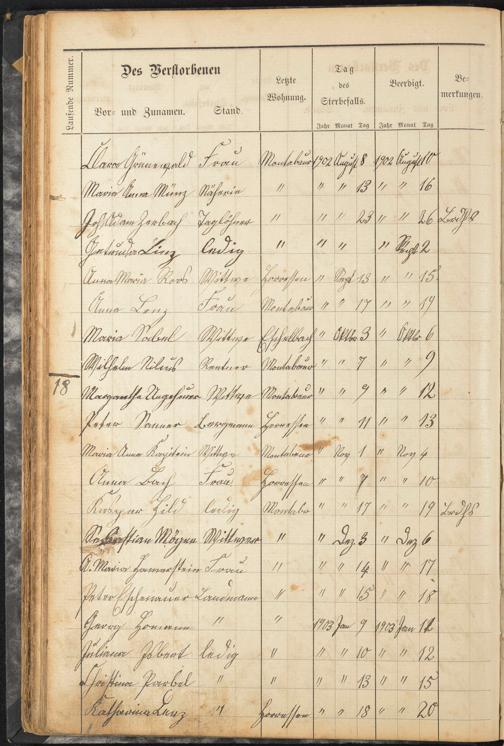 Laufende Nummer.
Des Verstorbenen
Vor- und Zunamen.
Stand.
Letzte Wohnung.
Tag des Sterbefalls.
Jahr Monat Tag
Beerdigt.
Jahr Monat Tag
Bemerkungen.
Clara Grünewald Frau Montabaur 1902 August 8 1902 August 10
Maria Anna Münz Näherin " " " 13 " " 16
Joh. Adam Zerbach Taglöhner " " " 23 " " 26
Gertruda Linz ledig " " " " Sept 2
Anna Maria Roos Wittwe Horressen " Sept 13 " " 15
Anna Lenz Frau Montabaur " " 17 " " 19
Maria Sabel Wittwe Eschelbach " Oktbr 3 " Oktbr 6
Wilhelm Nilius Rentner Montabaur " " 7 " " 9
18
Margaretha Ungeheuer Wittwe Montabaur " " 9 " " 12
Peter Sanner Bergmann Horressen " " 11 " " 13
Maria Anna Wittwe Montabaur " Nov 1 " Nov 4
Anna Bach Frau Horressen " " 7 " " 10
Kaspar Hild ledig Montabr " " 17 " " 19
Sebastian Wittwer " " Dez 3 " Dez 6
A. Maria Hammerstein Frau " " " 14 " " 17
Peter Eschenauer Landmann " " " 15 " " 18
Georg Homann " " 1903 Jan 9 1903 Jan 12
Juliana Jobert ledig " " " 10 " " 12
Christina " " " " 13 " " 15
Katharina Lenz " Horressen " " 18 " " 20